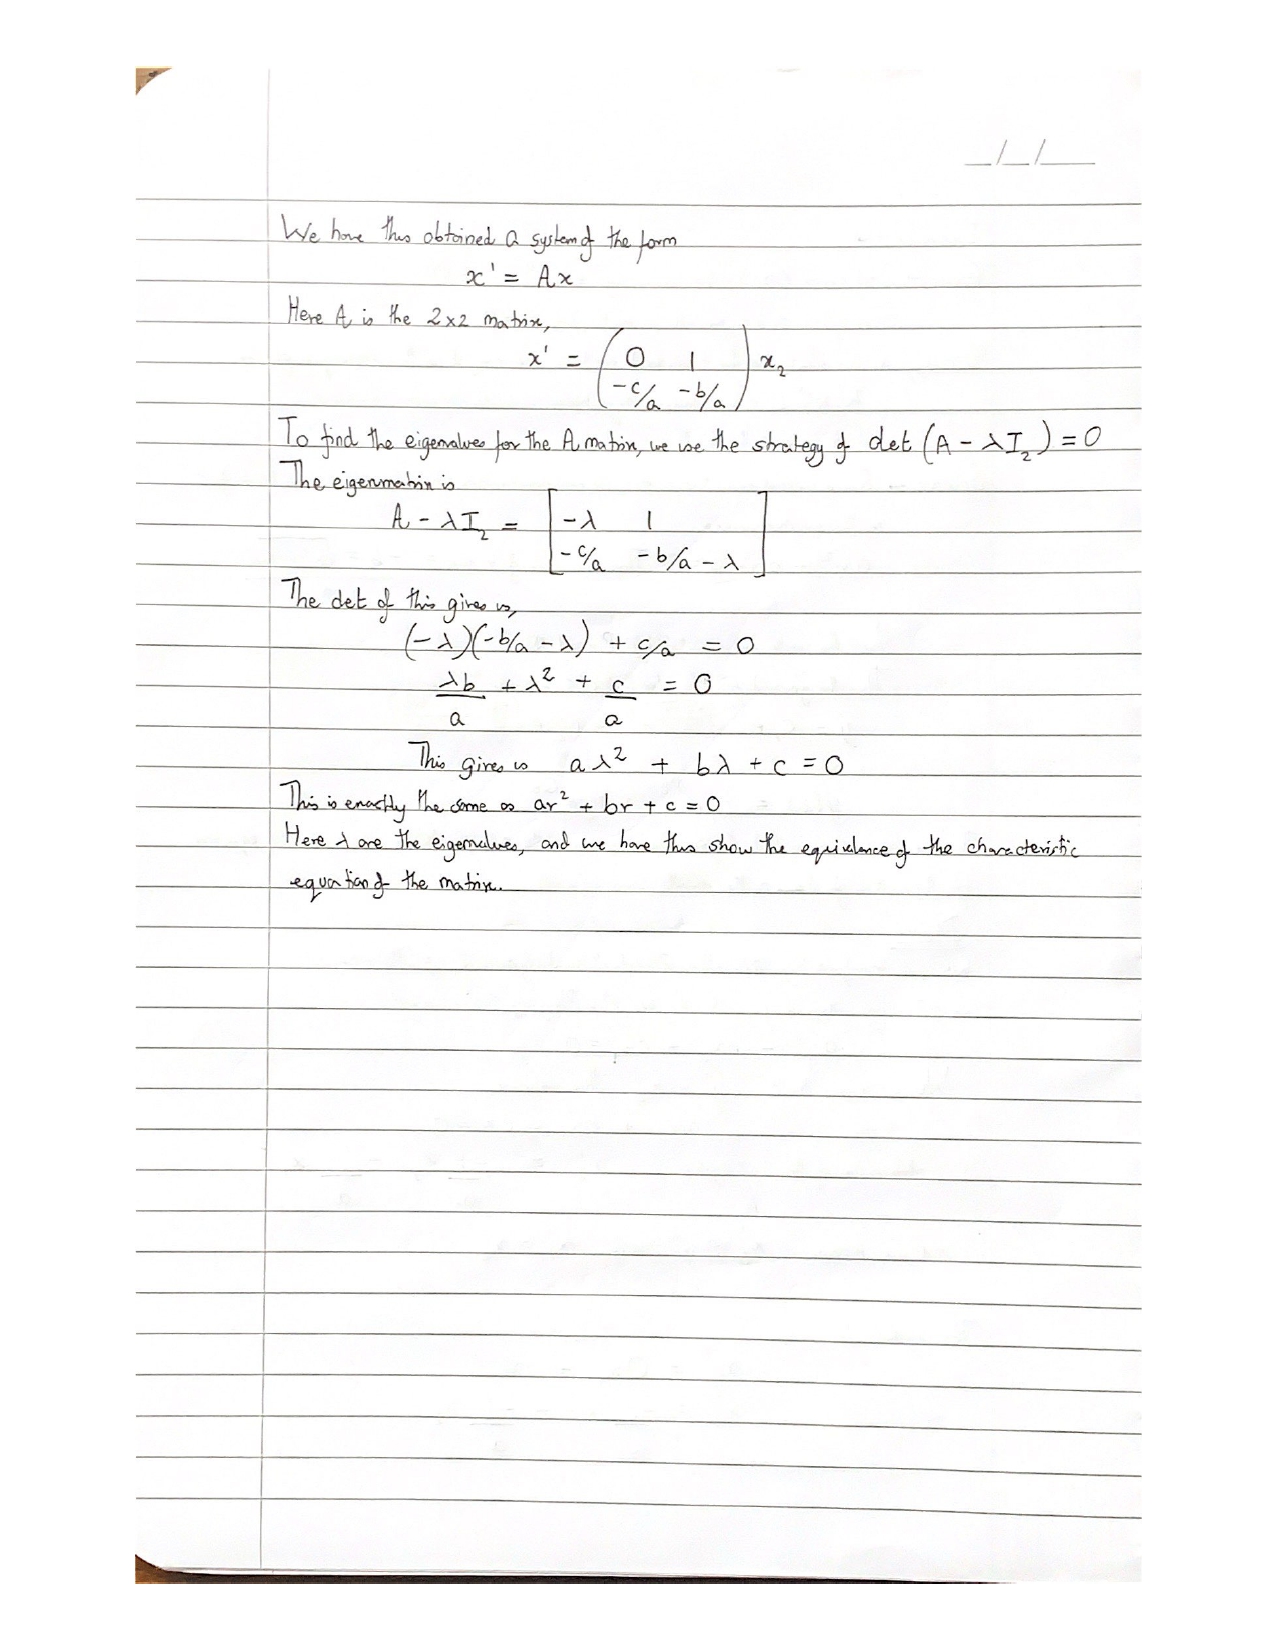 _/_/__
We have thus obtained a system of the form
x' = Ax
Here A is the 2x2 matrix,
x' = ( 0 1
-c/a -b/a ) x₂
To find the eigenvalues for the A matrix, we use the strategy of det (A - λI₂) = 0
The eigenmatrix is
A - λI₂ = [ -λ 1
-c/a -b/a - λ ]
The det of this gives us,
(-λ)(-b/a - λ) + c/a = 0
λb/a + λ² + c/a = 0
This gives us aλ² + bλ + c = 0
This is exactly the same as ar² + br + c = 0
Here λ are the eigenvalues, and we have thus show the equivalence of the characteristic
equation of the matrix.